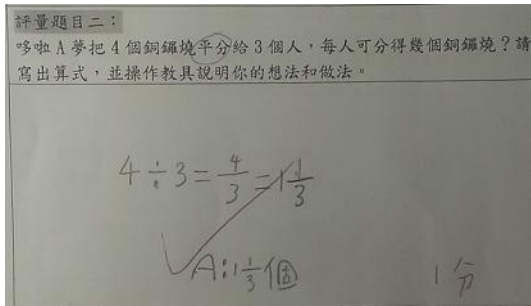 評量題目二：
哆啦A夢把4個銅鑼燒平分給3個人，每人可分得幾個銅鑼燒？請
寫出算式，並操作教具說明你的想法和做法。
4÷3=4/3=1 1/3
A:1 1/3個
1分